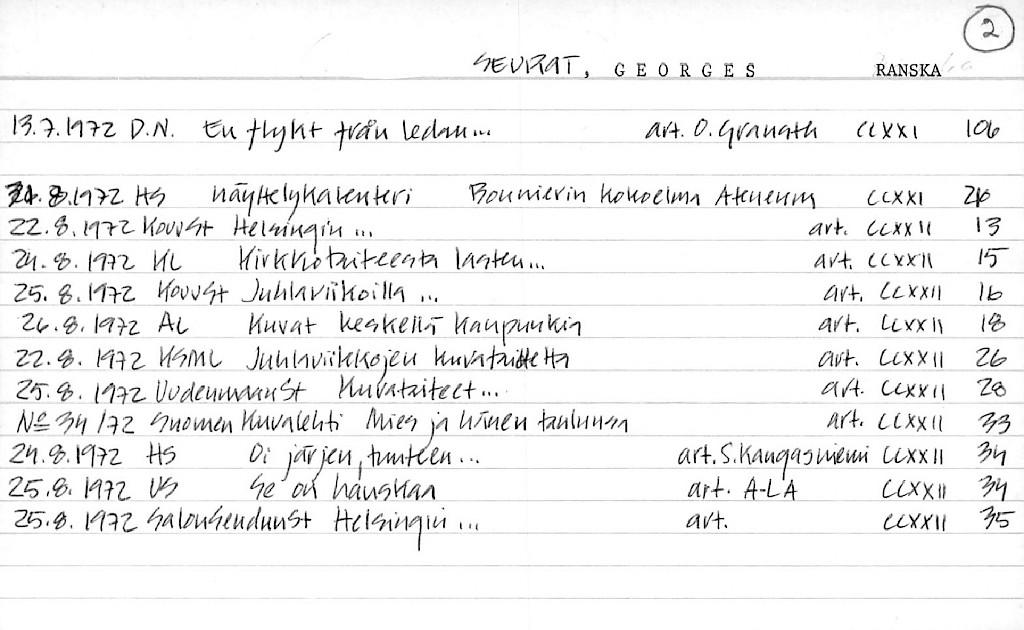 2
SEURAT, GEORGES RANSKA
13.7.1972 D.N. En flykt från ledan... art. O. Granath CCXXI 106
8.1972 HS Näyttelykalenteri Bonnierin kokoelma Ateneum CCXXI
22.8.1972 KouvSt Helsingin ... art. CCXXII 13
24.8.1972 KL Kirkkotaiteesta lasten... art. CCXXII 15
25.8.1972 KouvSt Juhlaviikoilla ... art. CCXXII 16
26.8.1972 AL Kuvat keskellä kaupunkia art. CCXXII 18
22.8.1972 KSML Juhlaviikkojen kuvataidetta art. CCXXII 26
25.8.1972 UudenmaanSt Kuvataiteet... art. CCXXII 28
No 34/72 Suomen Kuvalehti Mies ja hänen taulunsa art. CCXXII 33
24.8.1972 HS Oi järjen, tunteen... art. S. Kangasniemi CCXXII 34
25.8.1972 US Se on hauskaa art. A-LA CCXXII 34
25.8.1972 SalonSeudunSt Helsingin ... art. CCXXII 35